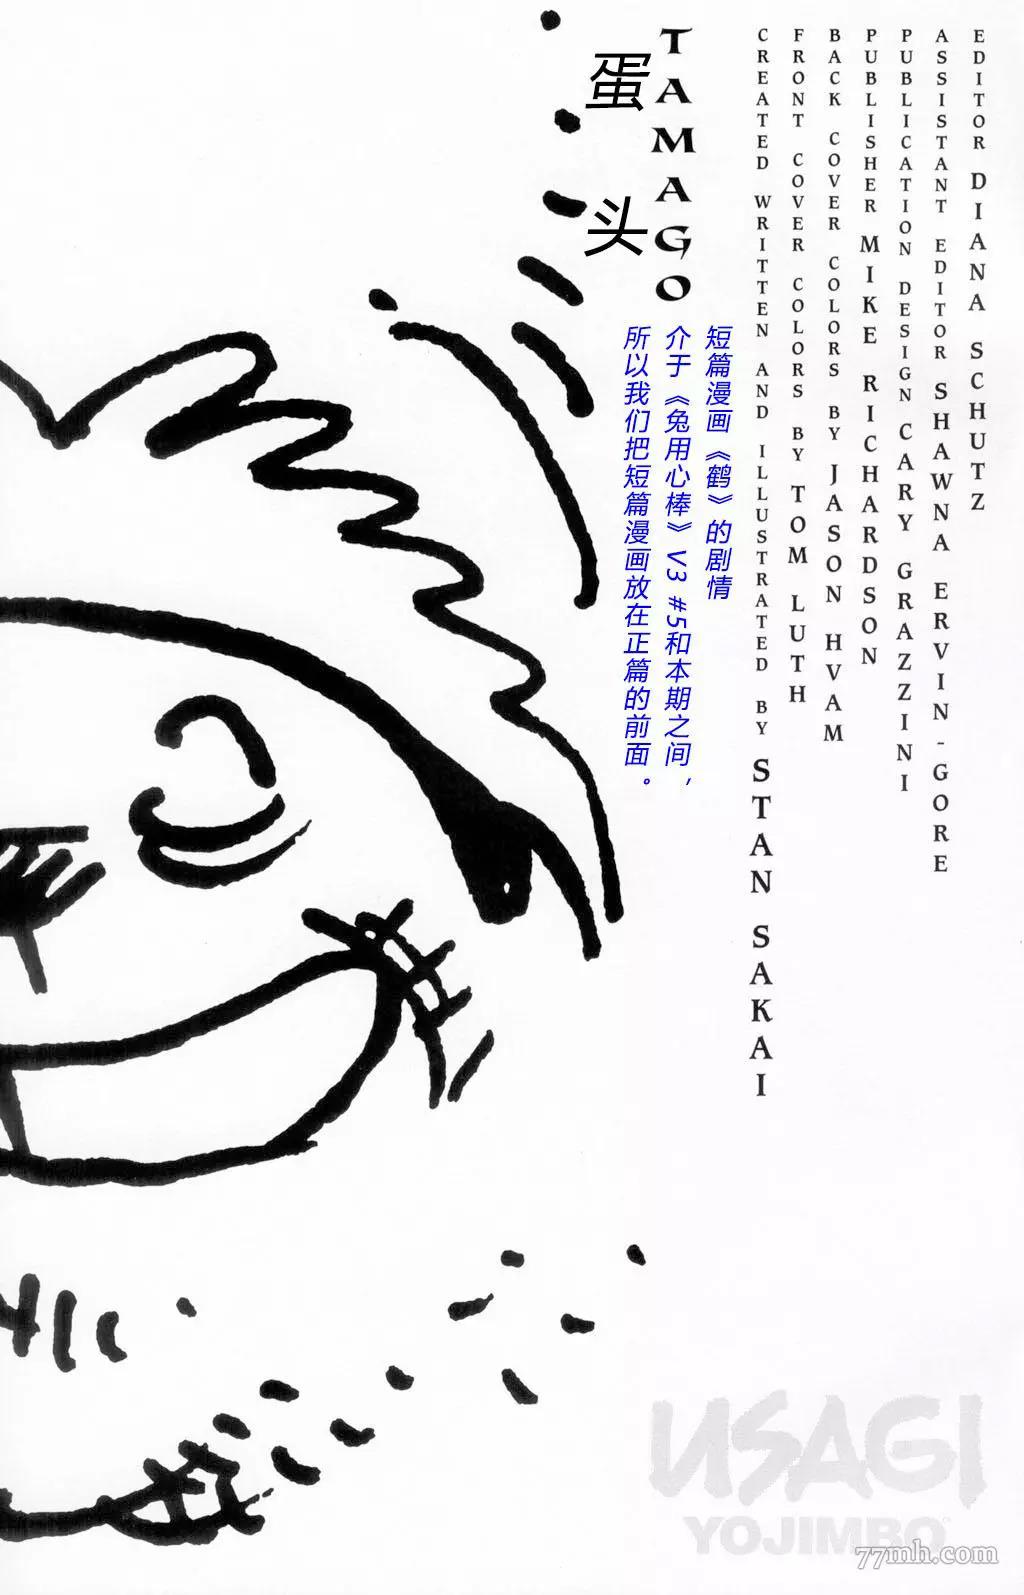 EDITOR DIANA SCHUTZ
ASSISTANT EDITOR SHAWNA ERVIN-GORE
PUBLICATION DESIGN CARY GRAZZINI
PUBLISHER MIKE RICHARDSON
BACK COVER COLORS BY JASON HVAM
FRONT COVER COLORS BY TOM LUTH
CREATED WRITTEN AND ILLUSTRATED BY STAN SAKAI
TAMAGO
蛋头
短篇漫画《鹤》的剧情
介于《兔用心棒》V3 #5和本期之间，
所以我们把短篇漫画放在正篇的前面。
USAGI
YOJIMBO
77mh.com